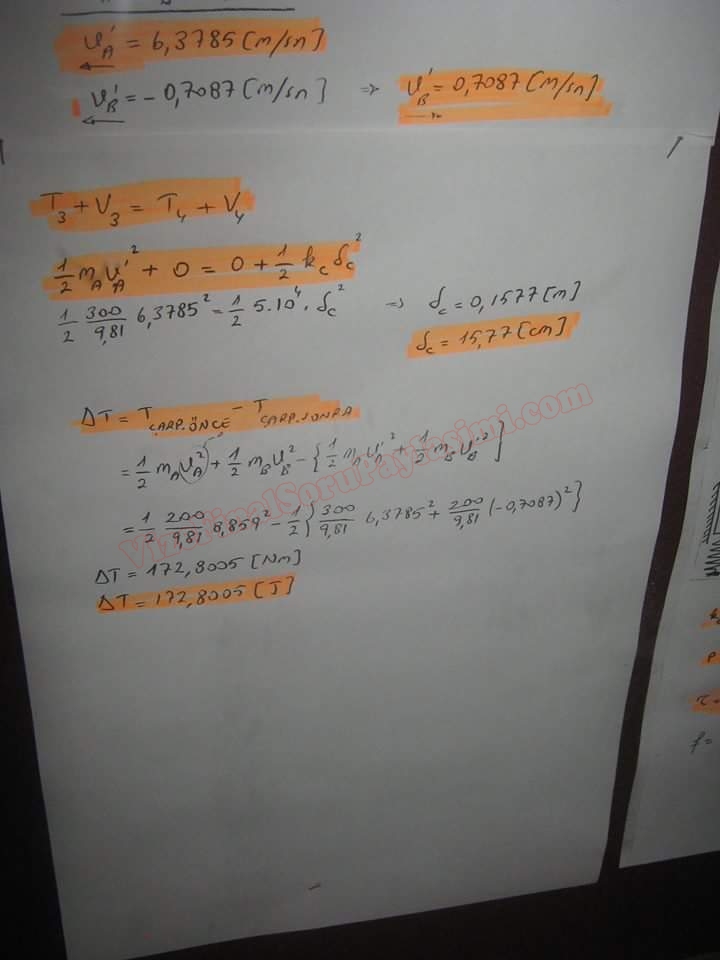 v'A = 6,3785 [m/sn]
v'B = -0,7087 [m/sn] => v'B = 0,7087 [m/sn]
T3 + V3 = T4 + V4
1/2 mA v'A² + 0 = 0 + 1/2 kc δc²
1/2 300/9,81 6,3785² = 1/2 5.10⁴ . δc² => δc = 0,1577 [m]
δc = 15,77 [cm]
ΔT = T ÇARP.ÖNCE - T ÇARP.SONRA
= 1/2 mA vA² + 1/2 mB vB² - { 1/2 mA v'A² + 1/2 mB v'B² }
= 1/2 200/9,81 6,859² - 1/2 { 300/9,81 6,3785² + 200/9,81 (-0,7087)² }
ΔT = 172,8005 [Nm]
ΔT = 172,8005 [J]
VizeFinalSoruPaylasimi.com